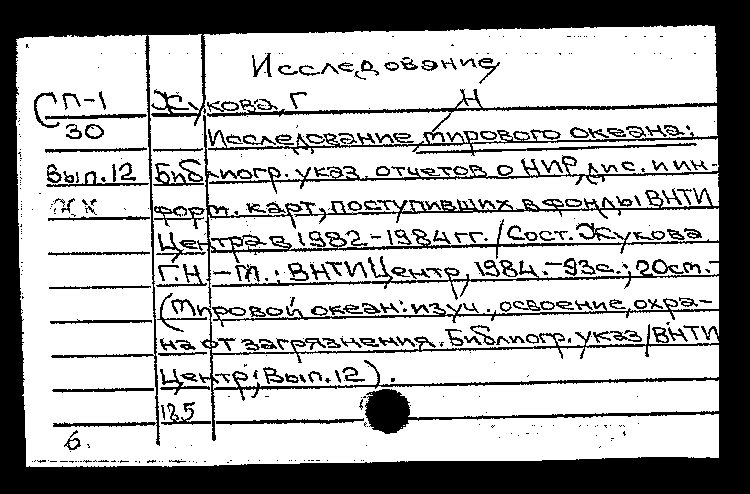 Исследование
СП-1 Жукова, Г Н
30 Исследование мирового океана:
Вып.12 Библиогр. указ. отчетов о НИР, дис. и ин-
ЖК форм. карт, поступивших в фонды ВНТИ
Центра в 1982-1984 гг. / Сост. Жукова
Г.Н – М.: ВНТИЦентр, 1984.-93с.; 20см.-
(Мировой океан: изуч., освоение, охра-
на от загрязнения. Библиогр. указ / ВНТИ
Центр; Вып.12).
125
6.